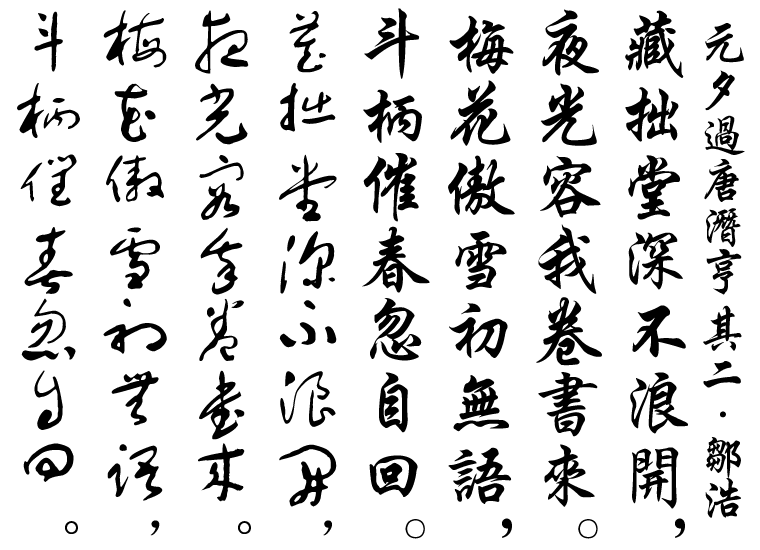 元夕過唐潛亨其二·鄒浩
藏拙堂深不浪開，
夜光容我卷書來。
梅花傲雪初無語，
斗柄催春忽自回。
藏拙堂深不浪開，
夜光容我卷書來。
梅花傲雪初無語，
斗柄催春忽自回。